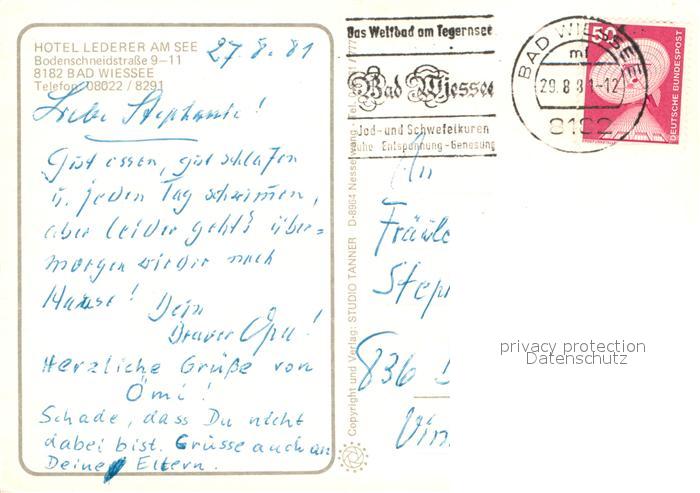 HOTEL LEDERER AM SEE
Bodenschneidstraße 9-11
8182 BAD WIESSEE
Telefon 08022 / 8291
27.8.81
Liebe Stephanie!
Gut essen, gut schlafen
u. jeden Tag schwimmen,
aber leider geht's über=
morgen wieder nach
Hause!
Dein
Braver Opa!
Herzliche Grüße von
Omi!
Schade, dass Du nicht
dabei bist. Grüsse auch an
Deine Eltern.
Copyright und Verlag: STUDIO TANNER D-8964 Nesselwang
Das Weltbad am Tegernsee
Bad Wiessee
Jod- und Schwefelkuren
Ruhe-Entspannung-Genesung
BAD WIESSEE
mf
29.8.81-12
8182
50
DEUTSCHE BUNDESPOST
An
Fräule
Step
836
privacy protection
Datenschutz